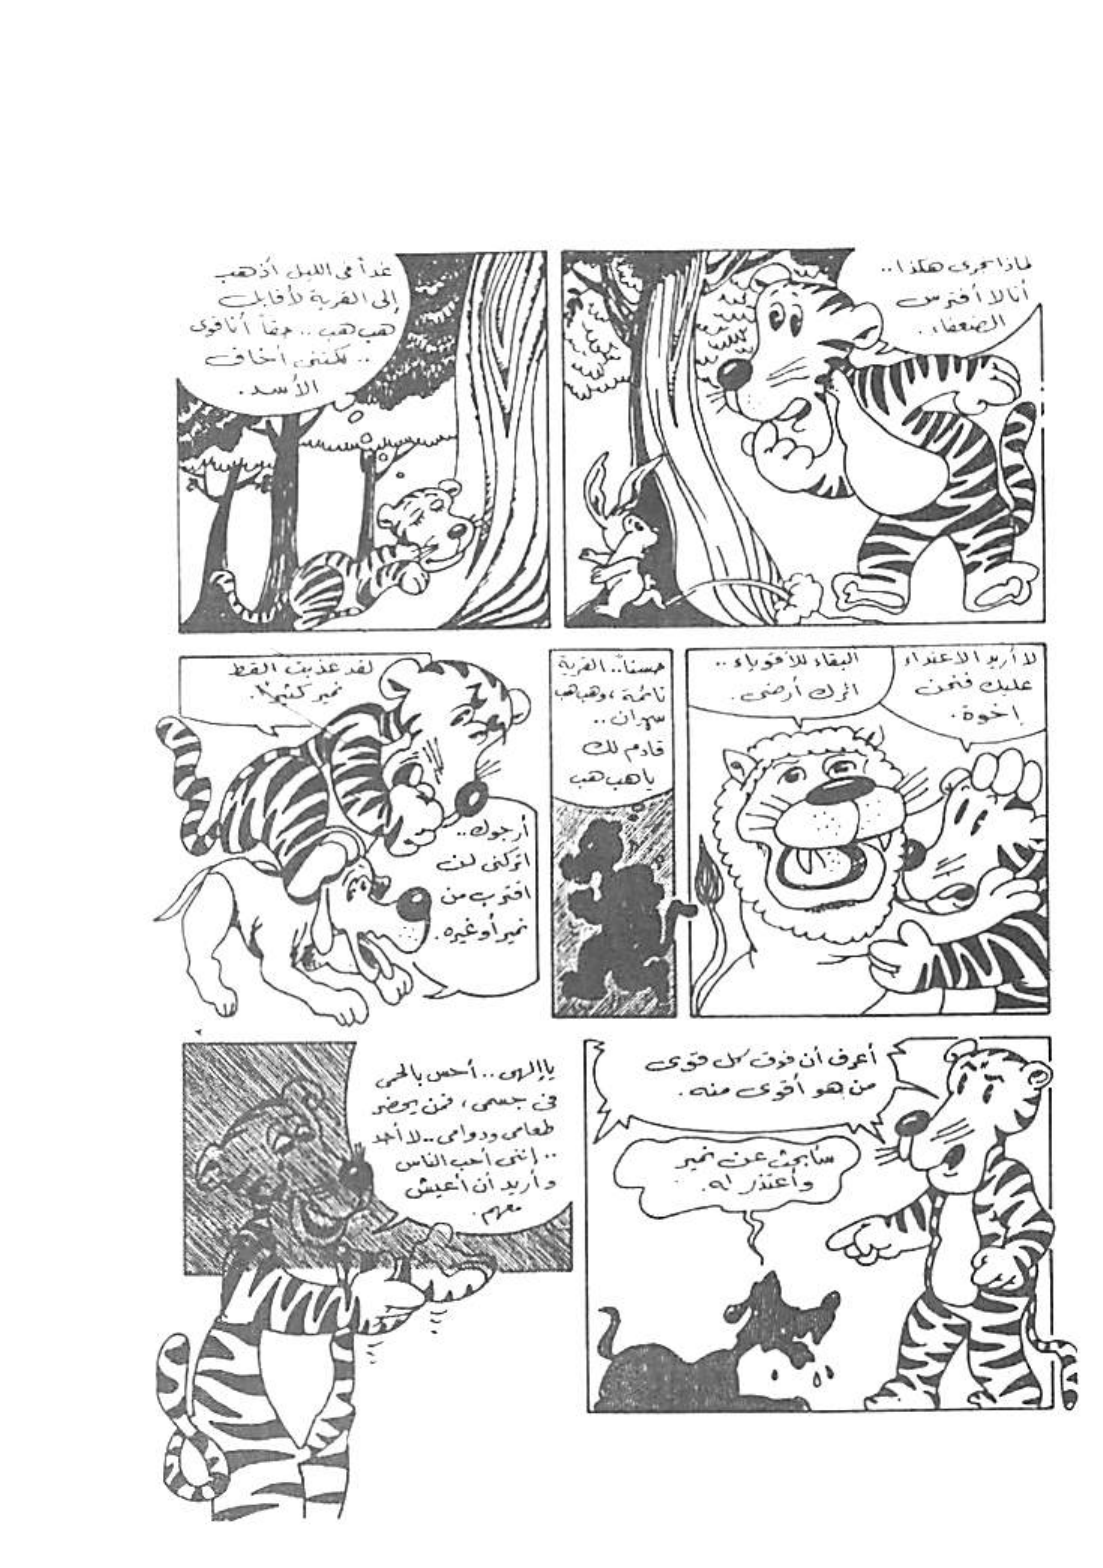 لماذا تجرى هكذا..
أنا لا أفترس
الضعفاء.
غداً فى الليل أذهب
إلى القرية لأقابل
هب هب.. حقاً أنا قوى
.. لكننى أخاف
الأسد.
لا أريد الاعتداء
عليك فنحن
إخوة.
البقاء للأقوياء..
اترك أرضى.
حسناً.. القرية
نائمة، وهب هب
سهران..
قادم لك
يا هب هب
لقد عذبت القط
نمير كثيراً.
أرجوك..
اتركنى لن
اقترب من
نمير أو غيره.
أعرف أن فوق كل قوى
من هو أقوى منه.
سأبحث عن نمير
وأعتذر له.
يا إلهى.. أحس بالحمى
فى جسمى، فمن يحضر
طعامى ودوائى.. لا أحد
.. إننى أحب الناس
وأريد أن أعيش
معهم.